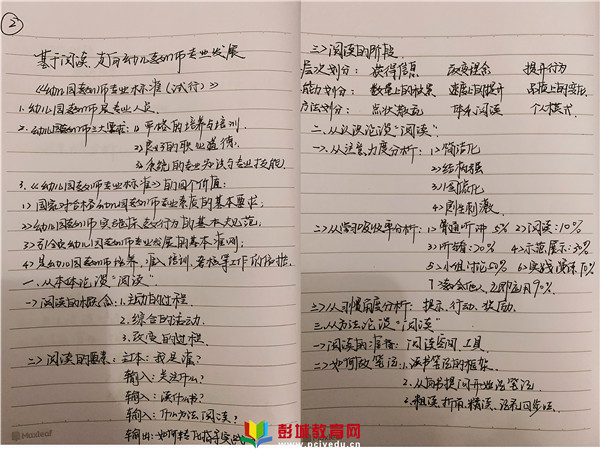 ②
基于阅读,走向幼儿教师专业发展
《幼儿园教师专业标准(试行)》
1.幼儿园教师是专业人员
2.幼儿园教师三大要求:1>严格的培养与培训
2>良好的职业道德
3>系统的专业知识与专业技能
3.《幼儿园教师专业标准》的四个价值:
1>国家对合格幼儿园教师专业素质的基本要求;
2>幼儿园教师实施保教行为的基本规范;
3>引领幼儿园教师专业发展的基本准则;
4>是幼儿园教师培养、准入、培训、考核等工作的依据.
一.从本体论谈“阅读”.
一>阅读的概念:1.主动的过程
2.综合的活动.
3.改变的过程
二>阅读的要素:主体:我是谁?
输入:关注什么?
输入:读什么书?
输入:用什么方法阅读?
输出:如何转化指导实践
Maxleaf
三>阅读的阶段.
层次划分: 获得信息 改变理念 提升行为
能力划分: 数量上的积累 速度上的提升 品质上的变化
方法划分: 点状散览 体系阅读 个人模式
二.从认识论谈“阅读”.
一>.从注意力度分析:1>简洁化
2>结构强
4>属性刺激
二>从学习吸收率分析:1>普通听讲5% 2>阅读:10%
3>听看:20% 4>示范展示:30%
5>小组讨论50% 6>实战演练70%
7.教会他人,立即应用90%
三>从习惯角度分析: 提示、行动、奖励.
三.从方法论谈“阅读”
一>阅读的准备: 阅读空间、工具
二>如何做笔记:1.读书笔记的框架
2.从问书提问开始记笔记
3.粗读折角、精读、记札同步法.
彭城教育网
www.pcjyedu.com